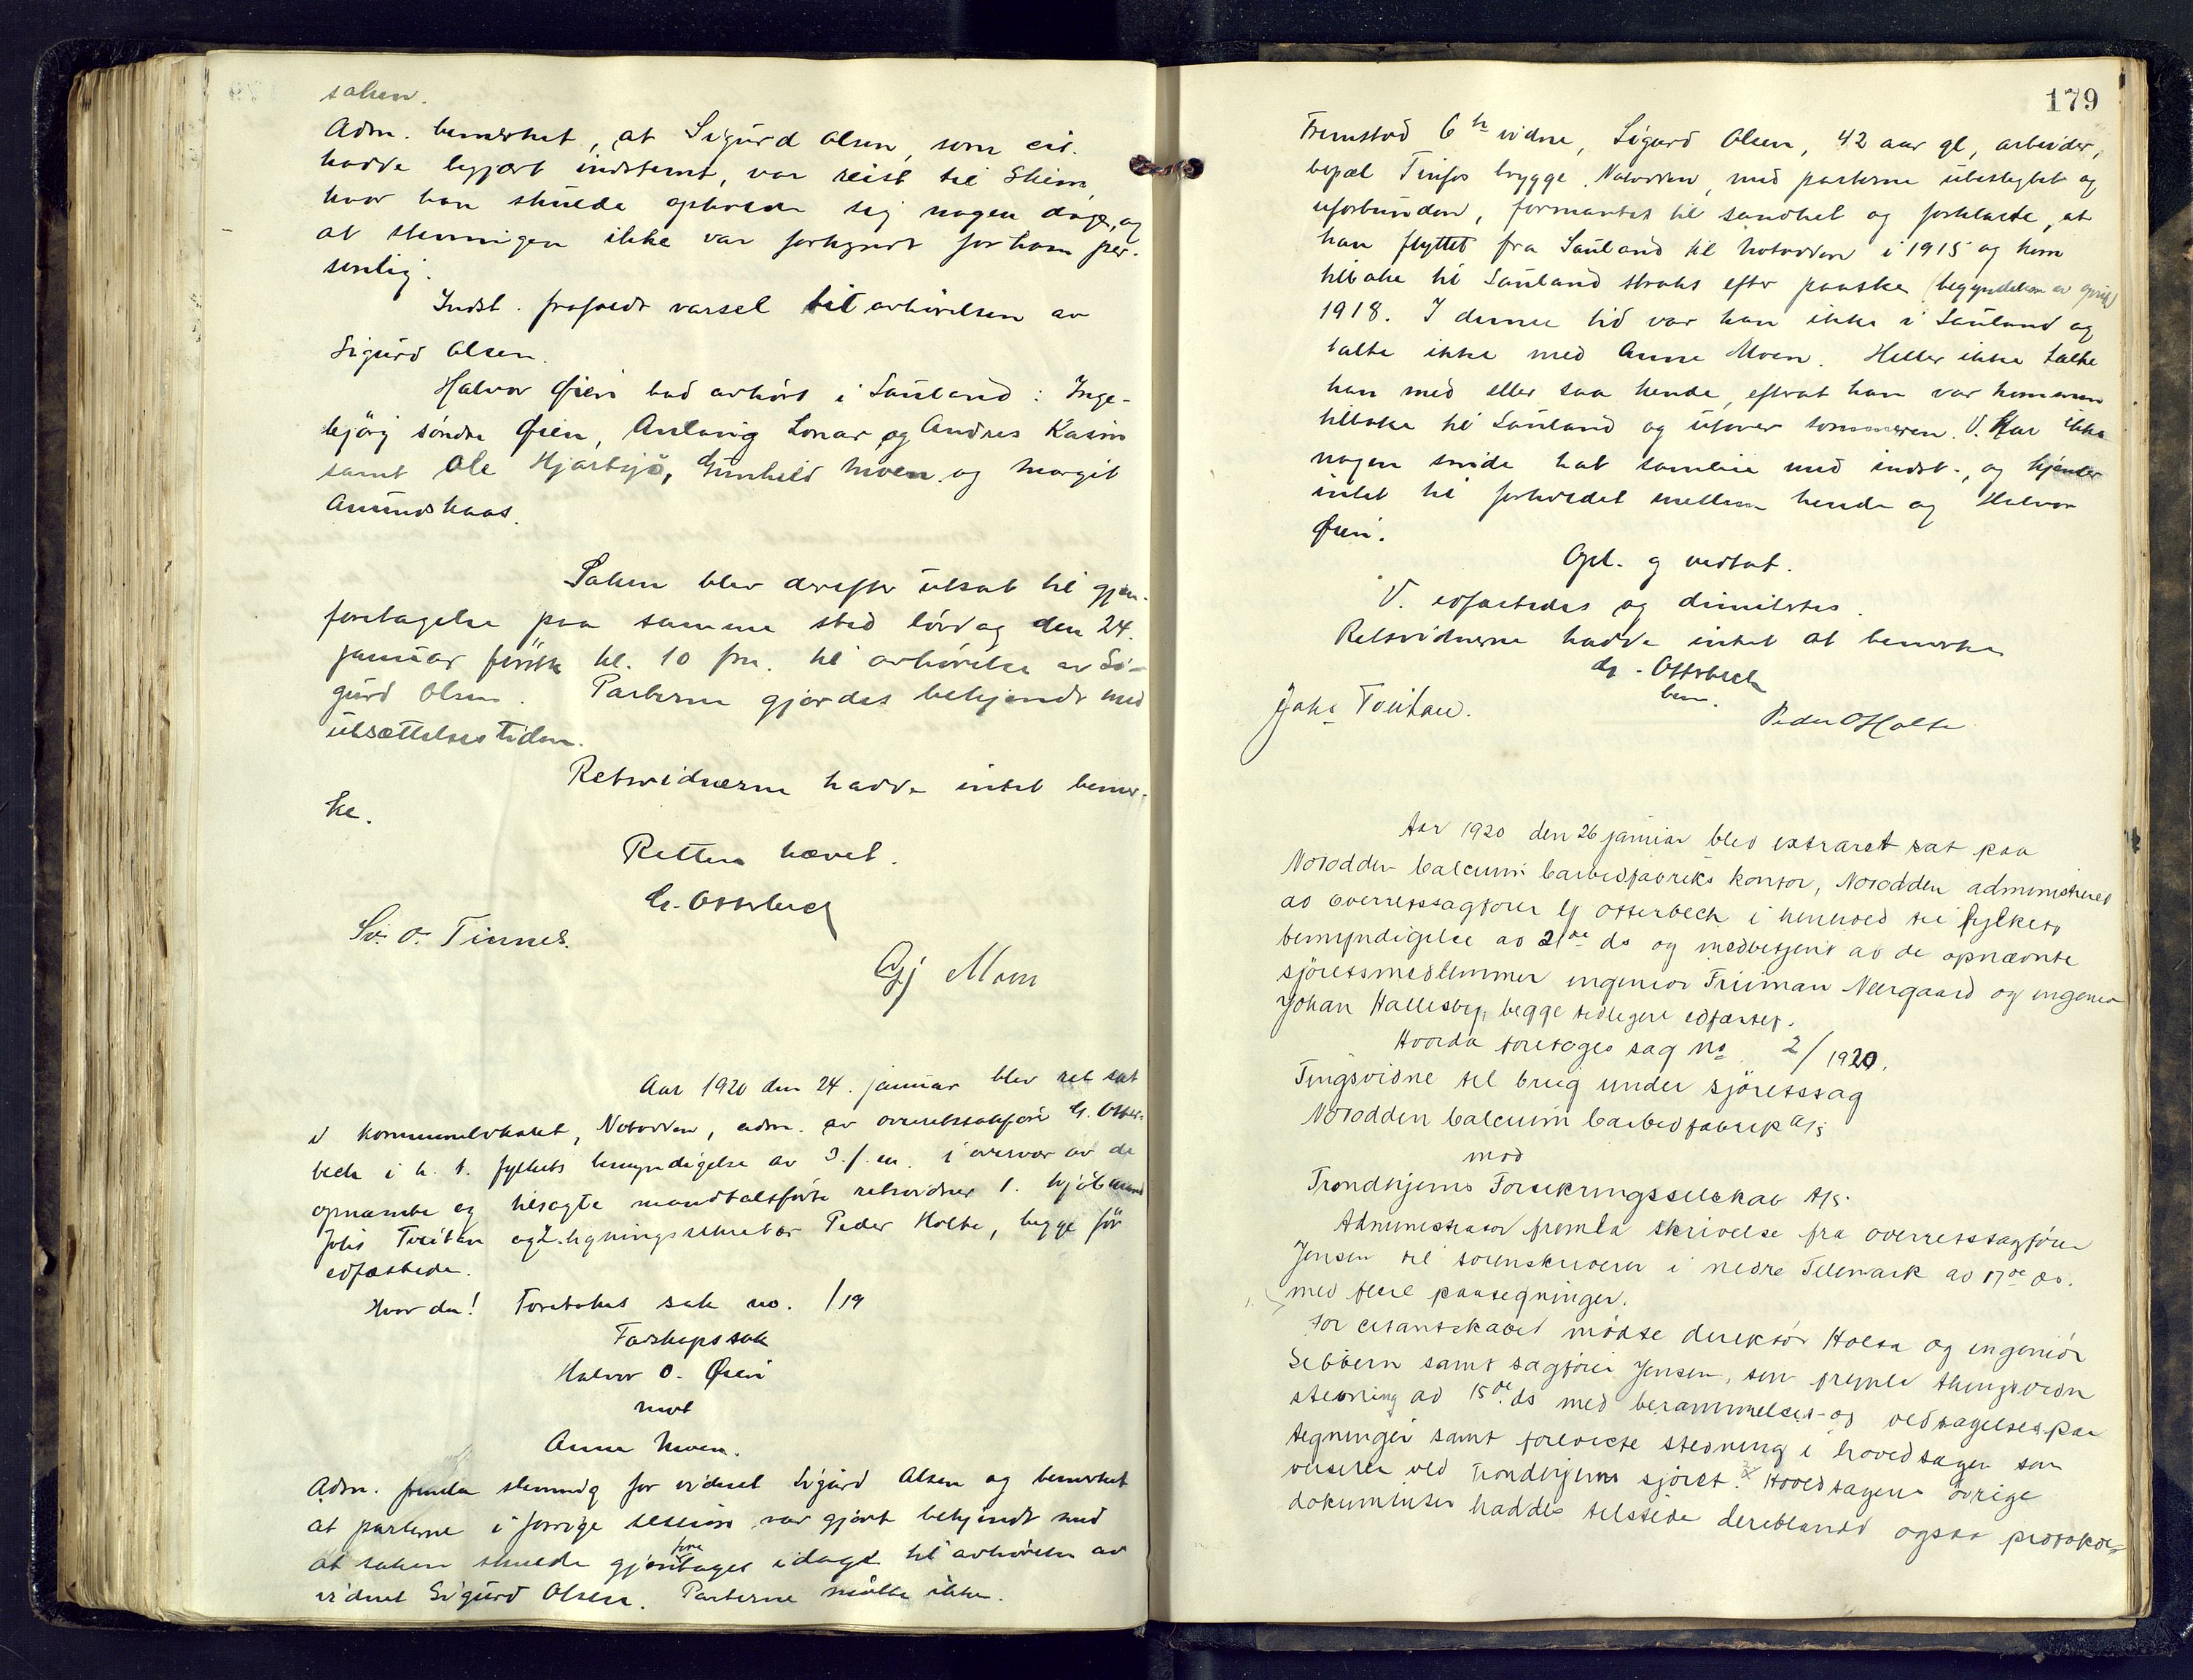 saken.
Adm. bemerket, at Sigurd Olsen, som cit.
hadde begjært indstemt, var reist til Skien,
hvor han skulde opholde sig nogen dage, og
at stevningen ikke var forkyndt for ham per-
sonlig.
Indst. frafaldt varsel til avhørelsen av
Sigurd Olsen.
Halvor Øien bad avhørt i Sauland: Inge-
björg söndre Øien, Anlaug Lonar og Andres Kasin
samt Ole Hjartsjø, Gunhild Moen og Margit
Amundshaas.
Saken blev derefter utsat til gjen-
foretagelse paa samme sted lördag den 24.
januar förstk. kl. 10 fm. til avhörelse av Si-
gurd Olsen. Parterne gjordes bekjendt med
utsættelsestiden.
Retsvidnerne hadde intet bemer-
ke.
Retten hævet.
G. Otterbech
Sv. O. Tinnes.
Gj Moen
Aar 1920 den 24. januar blev ret sat
i kommunelokalet, Notodden, adm. av overretssakfører G. Otter-
bech i h. t. fylkets bemyndigelse av 3. f. m. i overvær av de
opnævnte og tilsagte mandtalsførte retsvidner 1.
Johs Tveitan og 2. ligningssekretær Peder Holte, begge før
edfæstede.
Hvor da! Foretokes sak no. /19
Farskapssak
Halvor O. Øien
mot
Anne Moen.
Adm. fremla stevning for vidnet Sigurd Olsen og bemerket
at parterne i forrige session var gjort bekjendt med
at saken skulde gjenforetages idag til avhørelse av
vidnet Sigurd Olsen. Parterne møtte ikke.
179
Fremstod 6te vidne, Sigurd Olsen, 42 aar gl, arbeider,
bopæl Tinfos brygge, Notodden, med parterne ubeslegtet og
uforbunden, formantes til sandhet og forklarte, at
han flyttet fra Sauland til Notodden i 1915 og kom
tilbake til Sauland straks efter paaske (begyndelsen av april)
1918. I denne tid var han ikke i Sauland og
talte ikke med Anne Moen. Heller ikke talte
han med eller saa hende, efterat han var kommen
tilbake til Sauland og utover sommeren. V. har ikke
nogen sinde hat samleie med indst., og kjender
intet til forholdet mellem hende og Halvor
Øien.
Opl. og vedtat.
V. edfæstedes og dimitertes.
Retsvidnerne hadde intet at bemerke
G. Otterbech
bem.
Johs Tveitan.
Peder O Holte
Aar 1920 den 26 januar blev extraret sat paa
Notodden Calcium Carbidfabriks kontor, Notodden administreret
av overretssagfører G Otterbech i henhold til fylkets
bemyndigelse av 21de ds og medbetjent av de opnævnte
sjöretsmedlemmer ingeniør Neergaard og ingeniør
Johan Hallesby, begge tidligere edfæstet.
Hvorda foretoges sag No 2/1920.
Tingsvidne til brug under sjöretssag
Notodden Calcium Carbidfabrik A/S
mod
Trondhjems Forsikringsselskab A/S.
Administrator fremla skrivelse fra overretssagfører
Jensen til sorenskriveren i nedre Telemark av 17de ds.
med flere paategninger.
For citantskabet mødte direktør Holta og ingeniör
Sebbern samt sagfører Jensen, som fremla thingsvidne
stevning av 15de ds med berammelses- og vedtagelsespaa
tegninger samt forevicte stevning i hovedsagen som
verserer ved Trondhjems sjöret. Hovedsagens øvrige
dokumenter haddes tilstede deriblandt ogsaa protokol-